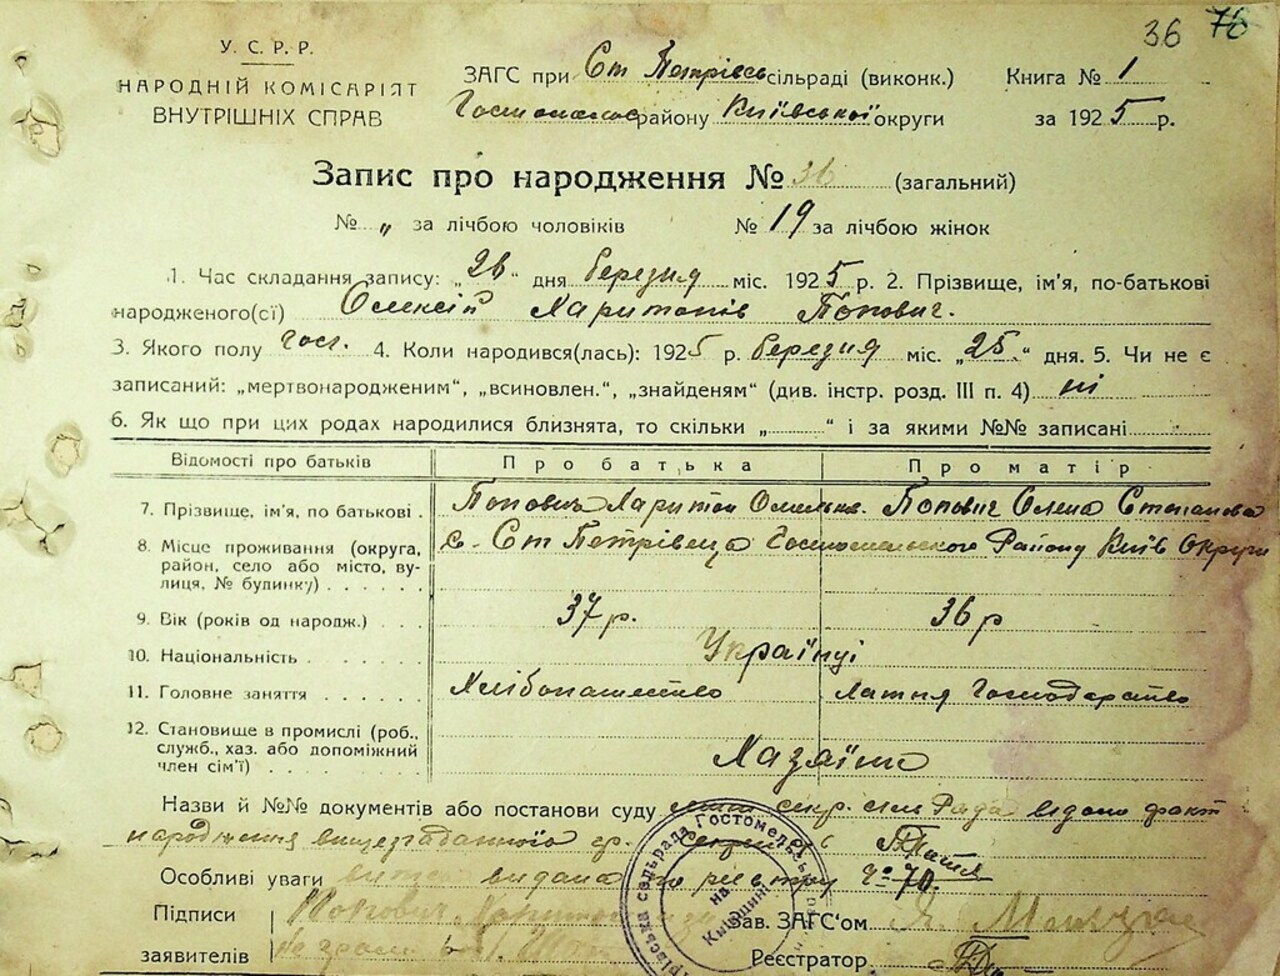 36 76
У. С. Р. Р.
НАРОДНІЙ КОМІСАРІЯТ
ВНУТРІШНІХ СПРАВ
ЗАГС при Ст Петрівсь сільраді (виконк.) Книга № 1
району Київської округи за 1925 р.
Запис про народження № 36 (загальний)
№ „ за лічбою чоловіків № 19 за лічбою жінок
1. Час складання запису: „26“ дня березня міс. 1925 р. 2. Прізвище, ім'я, по-батькові
народженого(сі) Олексій Харитонів Попович.
3. Якого полу 4. Коли народився(лась): 1925 р. березня міс. „25.“ дня. 5. Чи не є
записаний: „мертвонародженим“, „всиновлен.“, „знайденям“ (див. інстр. розд. III п. 4) ні
6. Як що при цих родах народилися близнята, то скільки „ “ і за якими №№ записані
Відомості про батьків Про батька Про матір
7. Прізвище, ім'я, по батькові . Попович Харитон Омельков. Попович Олена Степанова
8. Місце проживання (округа, с. Ст Петрівці Гостомельського Району Київ Округи
район, село або місто, ву-
лиця, № будинку) . . . . . .
9. Вік (років од народж.) . . . 37 р. 36 р
10. Національність . . . . . . Українці
11. Головне заняття . . . . . Хлібопашество Господарство
12. Становище в промислі (роб.,
служб., хаз. або допоміжний
член сім'ї) . . . . . . . .
Назви й №№ документів або постанови суду Рада видано факт
народження вищезгаданного гр.
Особливі уваги видано по реєстру № 70.
Підписи Попович Зав. ЗАГС'ом
заявителів Реєстратор
сельрада Гостомельськ
на Київщині